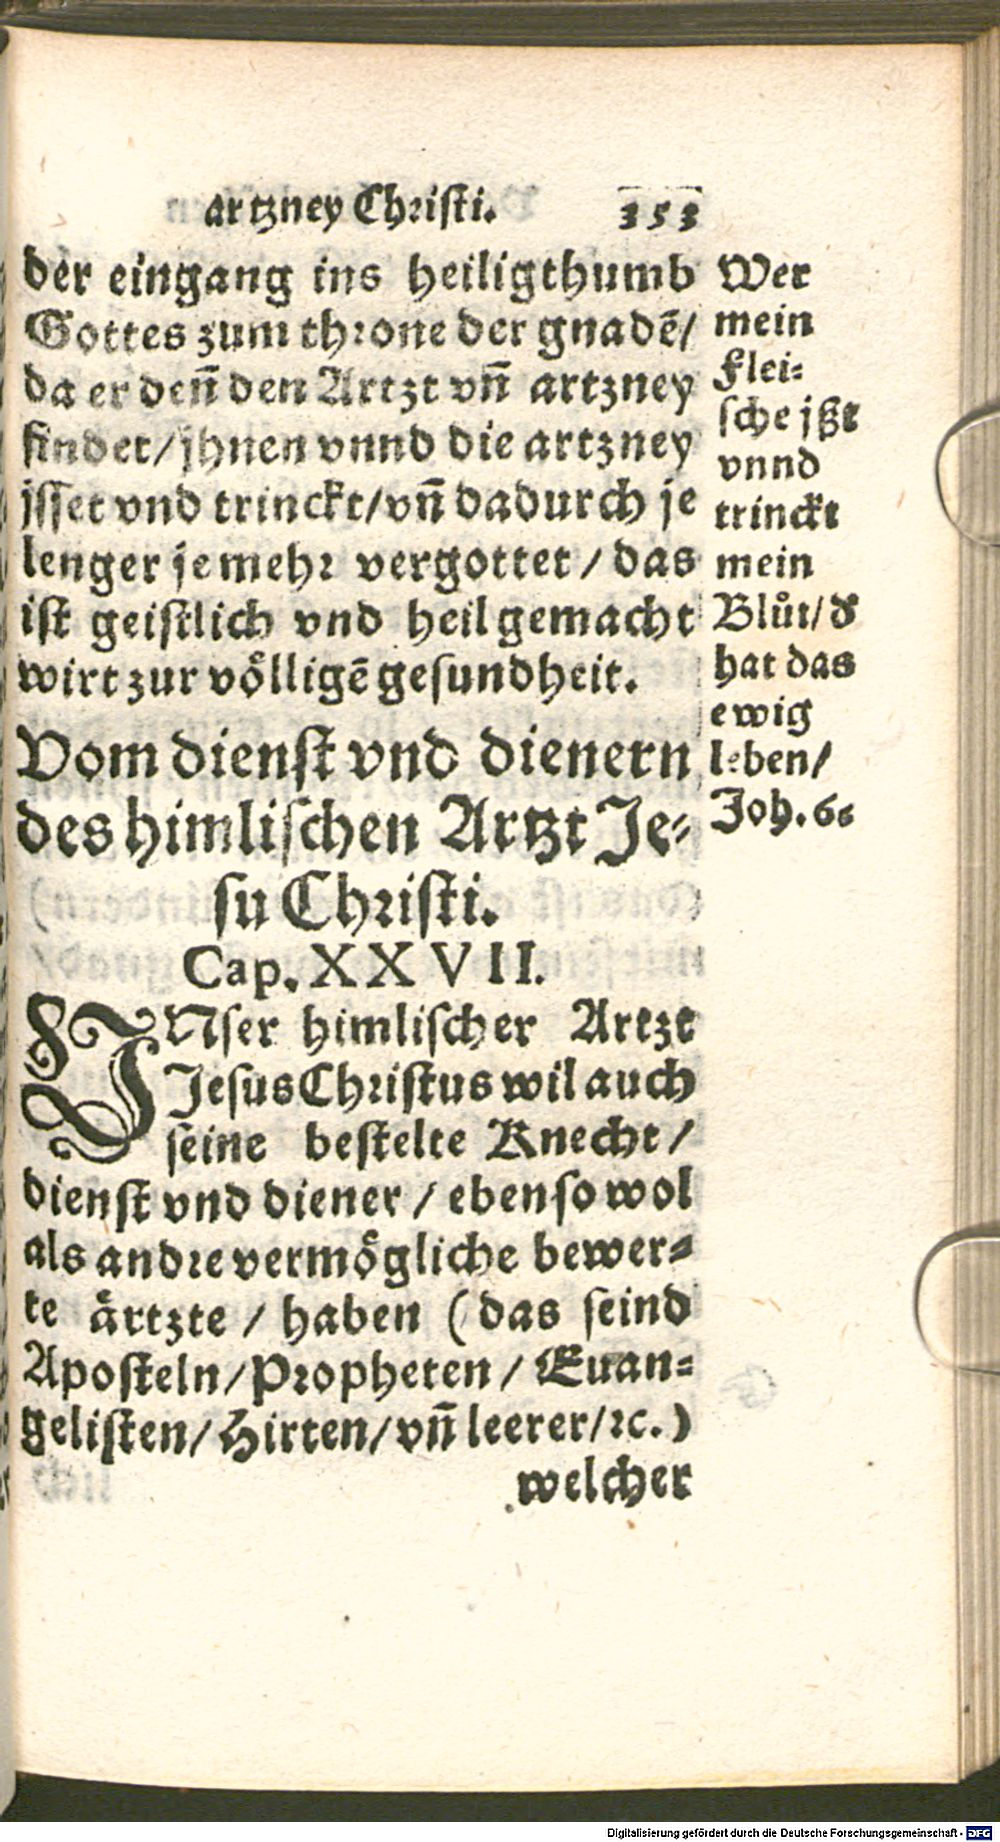 artzney Christi. 353
der eingang ins heiligthumb
Gottes zum throne der gnadē/
da er deñ den Artzt vñ artzney
findet/jhnen vnnd die artzney
jsset vnd trinckt/vñ dadurch je
lenger je mehr vergottet / das
ist geistlich vnd heil gemacht
wirt zur völligē gesundheit.
Wer
mein
Flei-
sche jßt
vnnd
trinckt
mein
Blůt/
hat das
ewig
leben/
Joh. 6.
Vom dienst vnd dienern
des himlischen Artzt Je-
su Christi.
Cap. XXVII.
VNser himlischer Artzt
Jesus Christus wil auch
seine bestelte Knecht /
dienst vnd diener / eben so wol
als andre vermögliche bewer-
te ärtzte / haben (das seind
Aposteln/Propheten / Euan-
gelisten/Hirten/vñ leerer/ꝛc.)
welcher
Digitalisierung gefördert durch die Deutsche Forschungsgemeinschaft - DFG